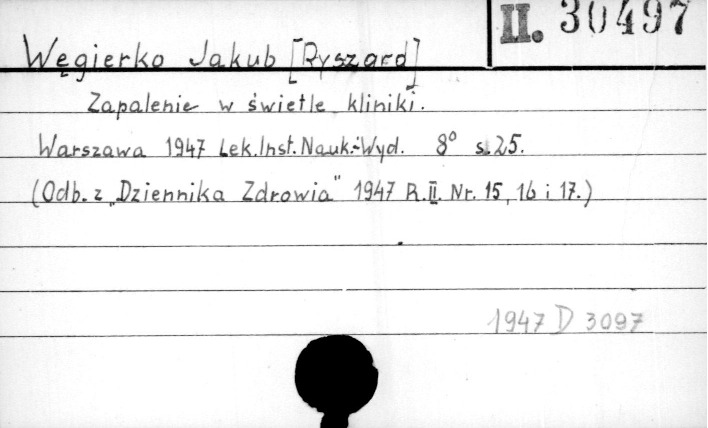 II. 30497
Węgierko Jakub [Ryszard]
Zapalenie w świetle kliniki.
Warszawa 1947 Lek.Inst.Nauk.-Wyd. 8° s.25.
(Odb. z „Dziennika Zdrowia" 1947 R.II. Nr. 15, 16 i 17.)
1947 D 3097